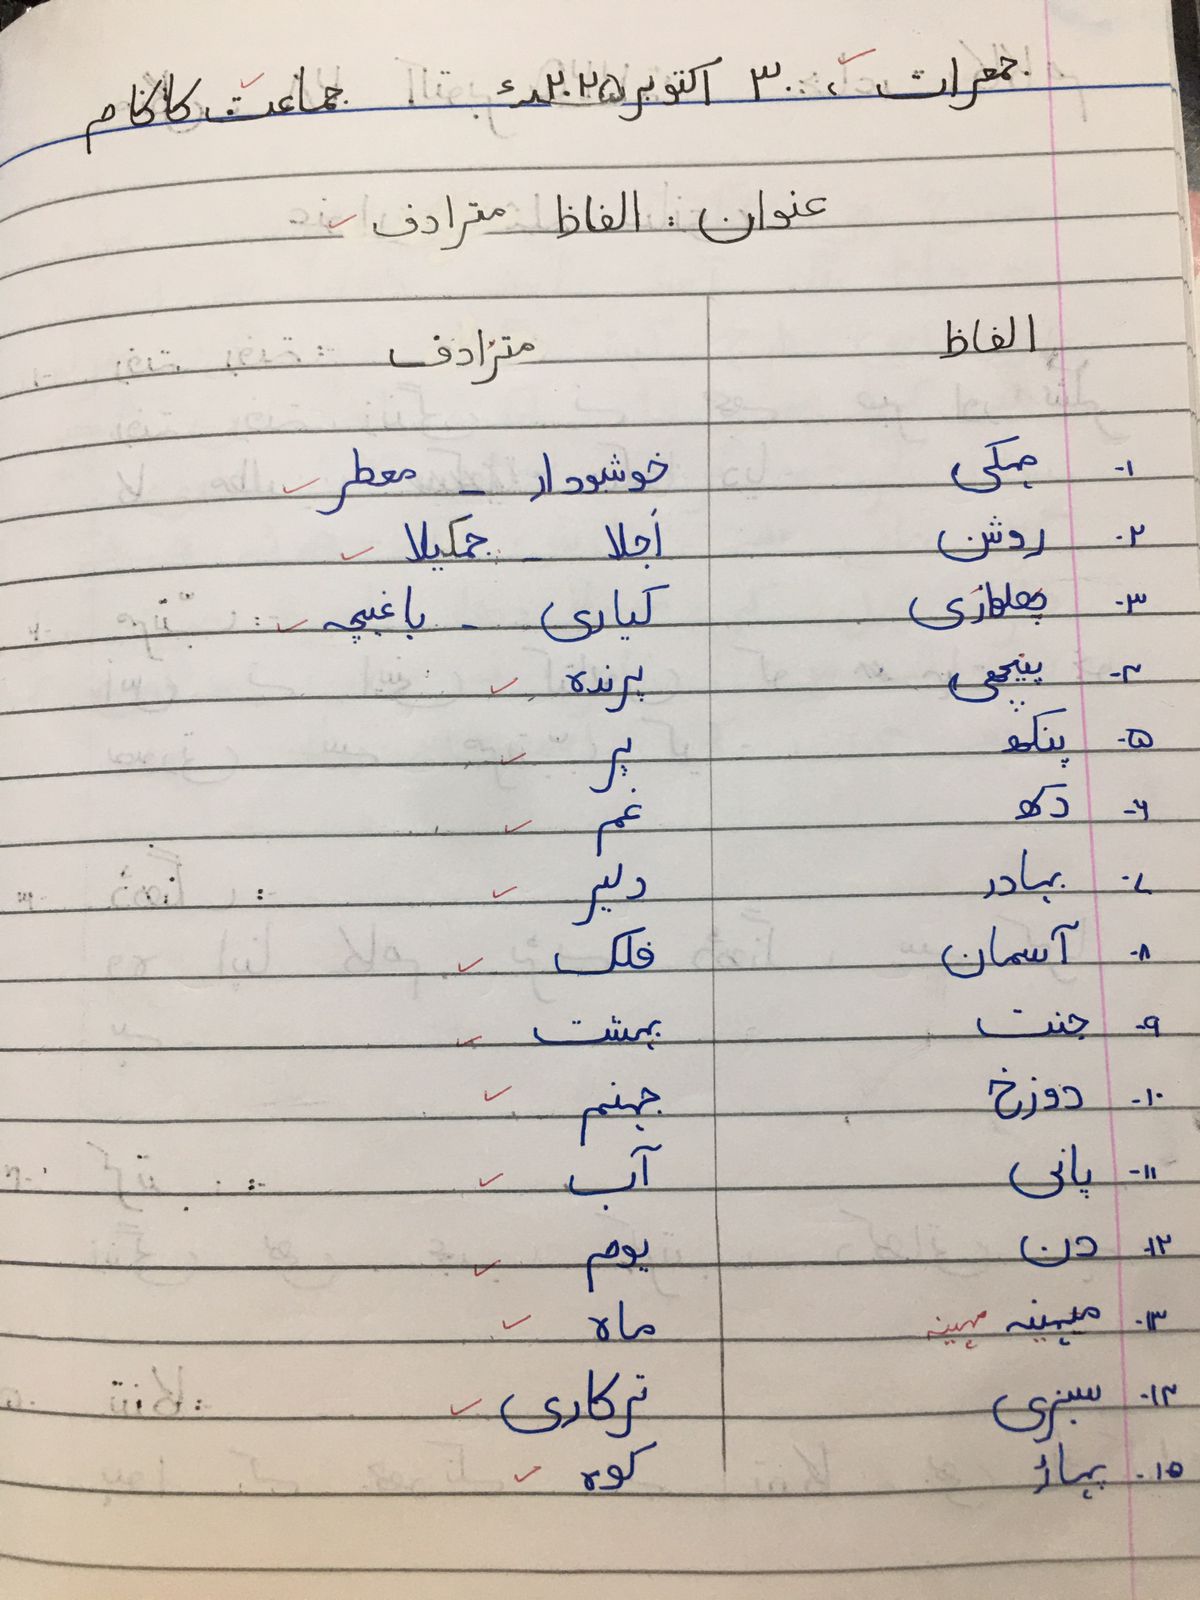 جمعرات، ۳۰ اکتوبر ۲۰۲۵ء جماعت کا کام
عنوان: الفاظ مترادف
الفاظ مترادف
۱- مہکی خوشبودار - معطر
۲- روشن اُجلا - چمکیلا
۳- پھلواڑی کیاری - باغیچہ
۴- پنچھی پرندہ
۵- پنکھ پر
۶- دکھ غم
۷- بہادر دلیر
۸- آسمان فلک
۹- جنت بہشت
۱۰- دوزخ جہنم
۱۱- پانی آب
۱۲- دن یوم
۱۳- میہینہ مہینہ ماہ
۱۴- سبزی ترکاری
۱۵- پہاڑ کوہ